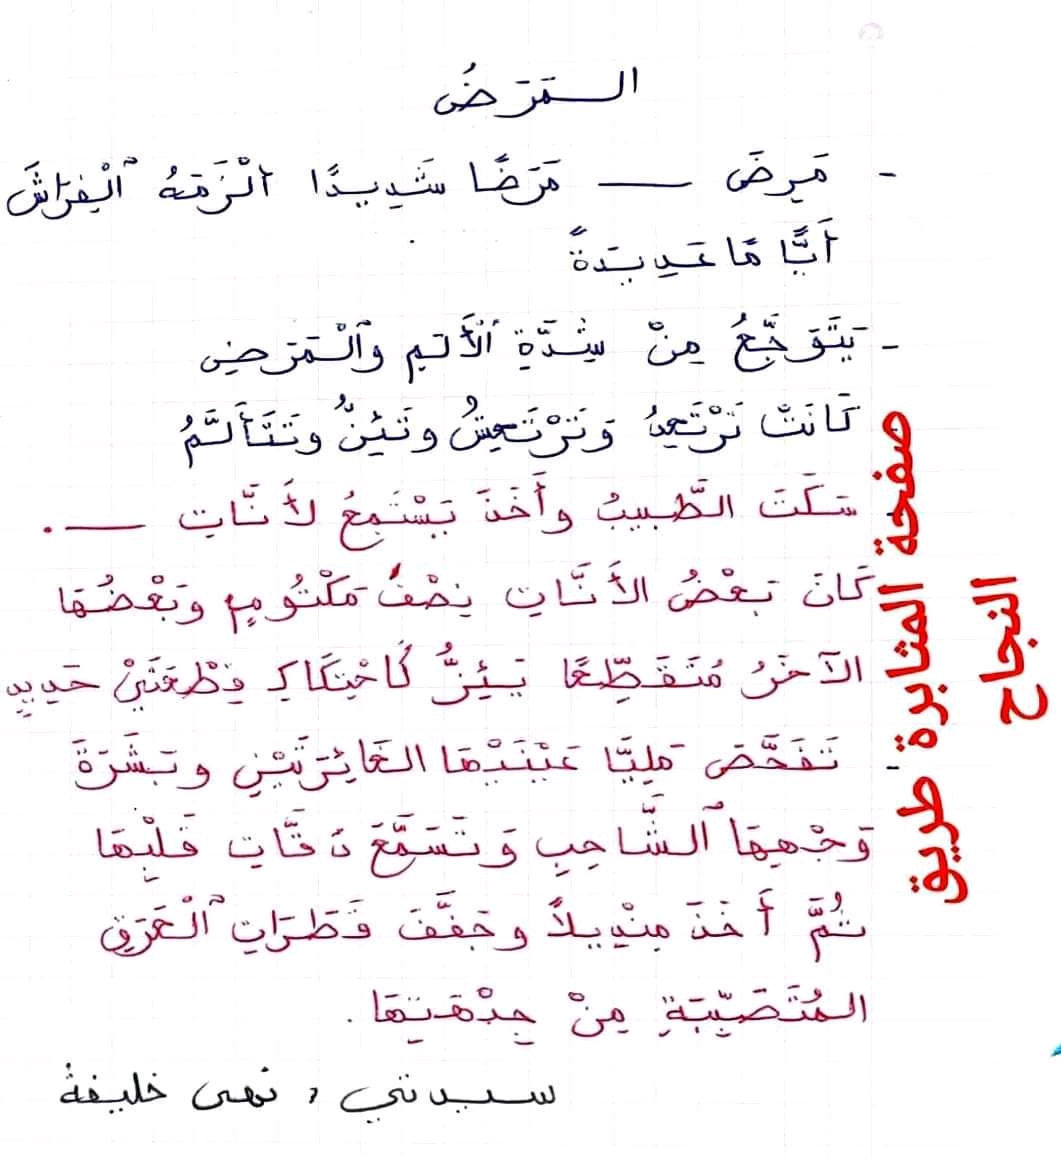 المَرَضُ
- مَرِضَ — مَرَضًا شَدِيدًا أَلْزَمَهُ ٱلْفِرَاشَ
أَيَّامًا عَدِيدَةً
- يَتَوَجَّعُ مِنْ شِدَّةِ ٱلْأَلَمِ وَٱلْمَرَضِ
كَانَتْ تَرْتَعِدُ وَتَرْتَعِشُ وتَئِنُّ وتَتَأَلَّمُ
سَكَتَ الطَّبِيبُ وأَخَذَ يَسْتَمِعُ لأَنَّاتِ — .
كَانَ بَعْضُ الأَنَّاتِ نِصْفُ مَكْتُومٍ وبَعْضُهَا
الآخَرُ مُتَقَطِّعًا يَئِنُّ كَاحْتِكَاكِ قِطْعَتَيْ حَدِيدٍ
- تَفَحَّصَ مَلِيًّا عَيْنَيْهَا الغَائِرَتَيْنِ وبَشَرَةَ
وَجْهِهَا ٱلشَّاحِبِ وَتَسَمَّعَ دَقَّاتِ قَلْبِهَا
ثُمَّ أَخَذَ مِنْدِيلاً وجَفَّفَ قَطَرَاتِ ٱلْعَرَقِ
المُتَصَبِّبَةِ مِنْ جِبْهَتِهَا .
سيدتي , نهى خليفة
صفحة المثابرة طريق
النجاح